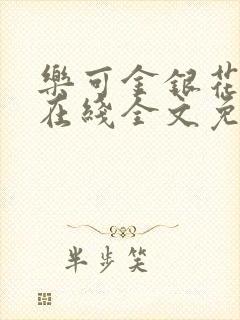 樂可金銀花
在綫全文免
半步笑